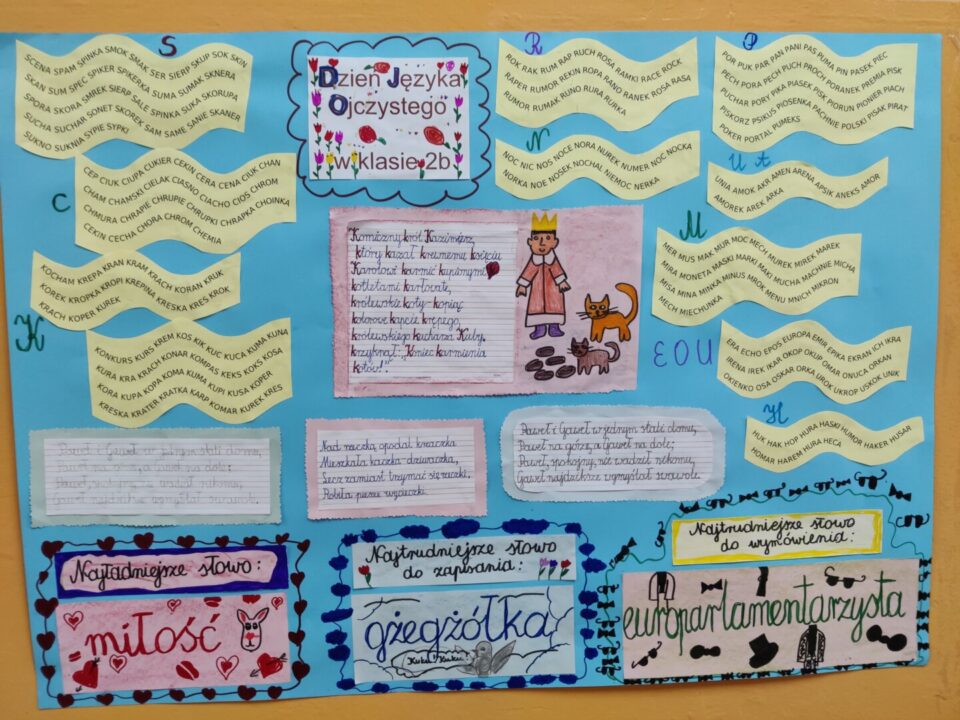 S
SCENA SPAM SPINKA SMOK SMAK SER SIERP SKUP SOK SKIN
SKAN SUM SPEC SPIKER SPIKERKA SUMA SUMAK SKNERA
SPORA SKORA SMREK SIERP SALE SPINKA SUKA SKORUPA
SUCHA SUCHAR SONET SKOREK SAM SAME SANIE SKANER
SUKNO SUKNIA SYPIE SYPKI
C
CEP CIUK CIUPA CUKIER CEKIN CERA CENA CIUK CHAN
CHAM CHAMSKI CIELAK CIASNO CIACHO CIOS CHROM
CHMURA CHRAPIE CHRUPIE CHRUPKI CHRAPKA CHOINKA
CEKIN CECHA CHORA CHROM CHEMIA
K
KOCHAM KREPA KRAN KRAM KRACH KORAN KRUK
KOREK KROPKA KROPI KREPINA KRESKA KRES KROK
KRACH KOPER KUREK
KONKURS KURS KREM KOS KIK KUC KUCA KUMA KUNA
KURA KRA KRACH KONAR KOMPAS KEKS KOKS KOSA
KORA KUPA KOPA KOMA KUMA KUPI KUSA KOPER
KRESKA KRATER KRATKA KARP KOMAR KUREK KRES
Dzień Języka
Ojczystego
w klasie 2b
R
ROK RAK RUM RAP RUCH ROSA RAMKI RACE ROCK
RAPER RUMOR REKIN ROPA RANO RANEK ROSA RASA
RUMOR RUMAK RUNO RURA RURKA
N
NOC NIC NOS NOCE NORA NUREK NUMER NOC NOCKA
NORKA NOE NOSEK NOCHAL NIEMOC NERKA
P
POR PUK PAR PAN PANI PAS PUMA PIN PASEK PIEC
PECH PORA PECH PUCH PROCH PORANEK PREMIA PISK
PUCHAR PORY PIKA PIASEK PISK PIORUN PIONIER PIACH
PISKORZ PSIKUS PIOSENKA PACHNIE POLSKI PISAK PIRAT
POKER PORTAL PUMEKS
U A
UNIA AMOK AKR AMEN ARENA APSIK ANEKS AMOR
AMOREK AREK ARKA
M
MER MUS MAK MUR MOC MECH MUREK MIREK MAREK
MIRA MONETA MASKI MARKI MAKI MUCHA MACHNIE MICHA
MISA MINA MINKA MINUS MROK MENU MNICH MIKRON
MECH MIECHUNKA
E O U
ERA ECHO EPOS EUROPA EMIR EPIKA EKRAN ICH IKRA
IRENA IREK IKAR OKOP OKUP OMAR ONUCA ORKAN
OKIENKO OSA OSKAR ORKA UROK UKROP USKOK UNIK
H
HUK HAK HOP HURA HASKI HUMOR HAKER HUSAR
HOMAR HAREM HURA HECA
Komiczny król Kazimierz,
który kazał krewnemu księciu
Karolowi karmić kupionymi
kotletami karłowate,
królewskie koty - kopiąc
kolorowe kapcie krępego,
królewskiego kucharza Kuby,
krzyknął: „Koniec karmienia
kotów!".
Paweł i Gaweł w jednym stali domu,
Paweł na górze, a Gaweł na dole;
Paweł, spokojny, nie wadził nikomu,
Gaweł najdziksze wymyślał swawole.
Nad rzeczką opodal krzaczka
Mieszkała kaczka-dziwaczka,
Lecz zamiast trzymać się rzeczki,
Robiła piesze wycieczki.
Paweł i Gaweł w jednym stali domu,
Paweł na górze, a Gaweł na dole;
Paweł, spokojny, nie wadził nikomu,
Gaweł najdziksze wymyślał swawole.
Najładniejsze słowo:
miłość
Najtrudniejsze słowo
do zapisania:
gżegżółka
Kuku! Kuku!
Najtrudniejsze słowo
do wymówienia:
europarlamentarzysta